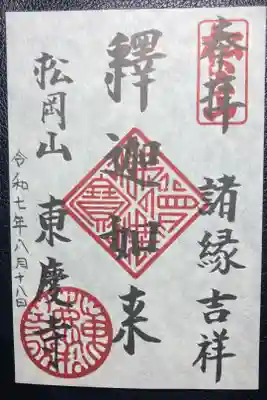 奉拝
諸縁吉祥
釋迦如来
松岡山
東慶寺
令和七年八月十八日